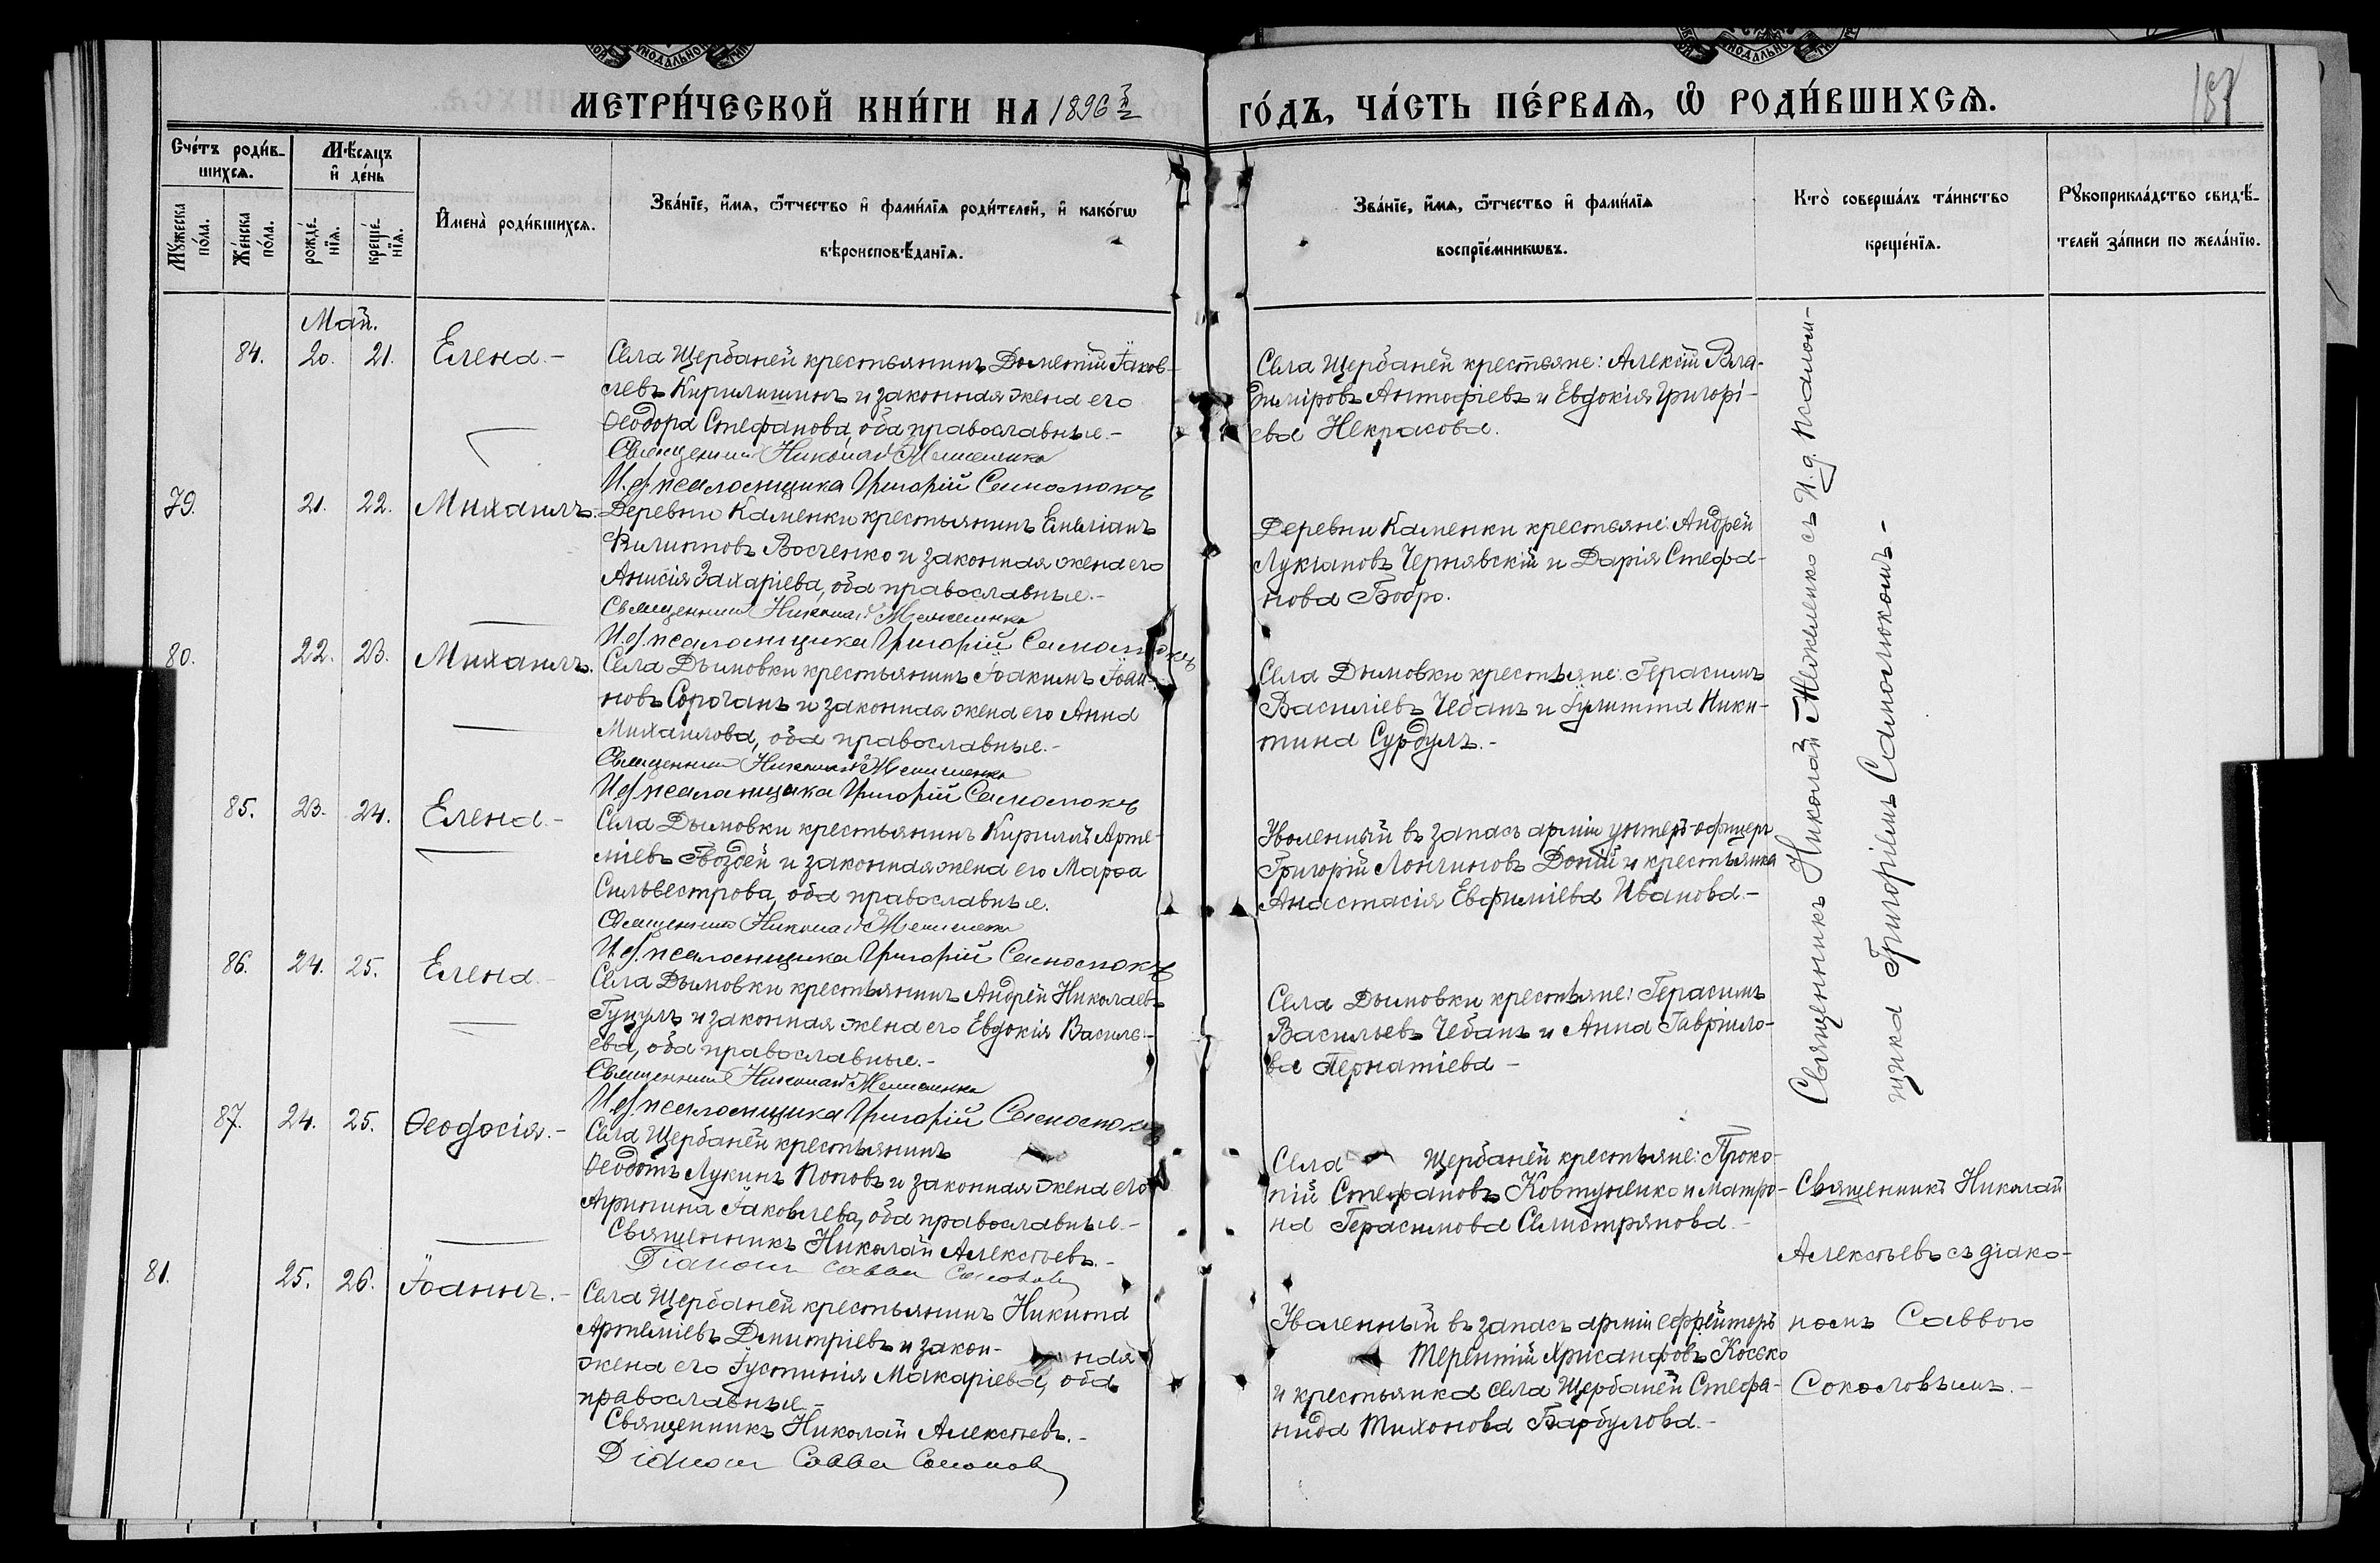 МЕТРИ́ЧЕСКОЙ КНИ́ГИ НА 1896й
ГО́ДЪ, ЧА́СТЬ ПЕ́РВАѦ, Ѽ РОДИ́ВШИХСѦ.
187
Сче́тъ роди́в-
шихсѧ.
Мѣ́сѧцъ
и҆ де́нь
Мꙋ́жеска
по́ла.
Же́нска
по́ла.
рожде́-
нїѧ.
креще́-
нїѧ.
И҆мена̀ роди́вшихсѧ.
Зва́нїе, и҆́мѧ, ѻ҆́тчество и҆ фами́лїѧ роди́телей, и҆ како́гѡ
вѣроисповѣ́данїѧ.
Зва́нїе, и҆́мѧ, ѻ҆́тчество и҆ фами́лїѧ
воспрїе́мникѡвъ.
Кто̀ соверша́лъ та́инство
креще́нїѧ.
Рꙋкоприкла́дство свидѣ́-
телей за́писи по жела́нїю.
Май.
84. 20. 21. Елена.-
Села Щербаней крестьянинъ Дометій Іаков-
левъ Кирилишинъ и законная жена его
Ѳеодора Стефанова, оба православные.-
Священникъ Николай
И.д. псаломщика Григорій Самостюкъ
Села Щербаней крестьяне: Алексій Вла-
диміровъ Антофіевъ и Евдокія Григорі-
ева Некрасова.
79. 21. 22. Михаилъ.
Деревни Каменки крестьянинъ Емеліанъ
Филипповъ Восченко и законная жена его
Анисія Захаріева, оба православные.-
Священникъ Николай
И.д. псаломщика Григорій Самостюкъ
Деревни Каменки крестьяне: Андрей
Лукіановъ Чернявскій и Дарія Стефа-
нова Бобро.
80. 22. 23. Михаилъ.
Села Дымовки крестьянинъ Іоакимъ Іоан-
новъ Сорочанъ и законная жена его Анна
Михаилова, оба православные.-
Священникъ Николай
И.д. псаломщика Григорій Самостюкъ
Села Дымовки крестьяне: Герасимъ
Василіевъ Чебанъ и Іулитта Ники-
тина Сурдулъ.-
85. 23. 24. Елена.-
Села Дымовки крестьянинъ Кириллъ Арте-
міевъ Гвоздей и законная жена его Марѳа
Сильвестрова, оба православные.
Священникъ Николай
И.д. псаломщика Григорій Самостюкъ
Уволенный въ запасъ арміи унтеръ-офицеръ
Григорій Лонгиновъ Доній и крестьянка
Анастасія Евфиміева Иванова.-
86. 24. 25. Елена.-
Села Дымовки крестьянинъ Андрей Николаевъ
Гуцулъ и законная жена его Евдокія Василь-
ева, оба православные.-
Священникъ Николай
И.д. псаломщика Григорій Самостюкъ
Села Дымовки крестьяне: Герасимъ
Васильевъ Чебанъ и Анна Гавріило-
ва Пернатіева -
Священникъ Николай съ И.д. псалом-
щика Григоріемъ Самостюкомъ.-
87. 24. 25. Ѳеодосія.-
Села Щербаней крестьянинъ
Ѳеодотъ Лукинъ Поповъ и законная жена его
Агрипина Іаковлева, оба православные.-
Священникъ Николай Алексѣевъ.-
Діаконъ Савва Соколов
Села Щербаней крестьяне: Проко-
пій Стефановъ Ковтуненко и Матро-
на Герасимова Селистрянова.-
Священникъ Николай
Алексѣевъ съ діако-
номъ Саввою
Соколовымъ.-
81. 25. 26. Іоаннъ.-
Села Щербаней крестьянинъ Никита
Артеміевъ Димитріевъ и закон-ная
жена его Іустинія Макаріева, оба
православные.-
Священникъ Николай Алексѣевъ.-
Діаконъ Савва Соколов
Уволенный въ запасъ арміи ефрейторъ
Терентій Хрисанфовъ Косько
и крестьянка села Щербаней Стефа-
нида Тихонова Барбулова.-